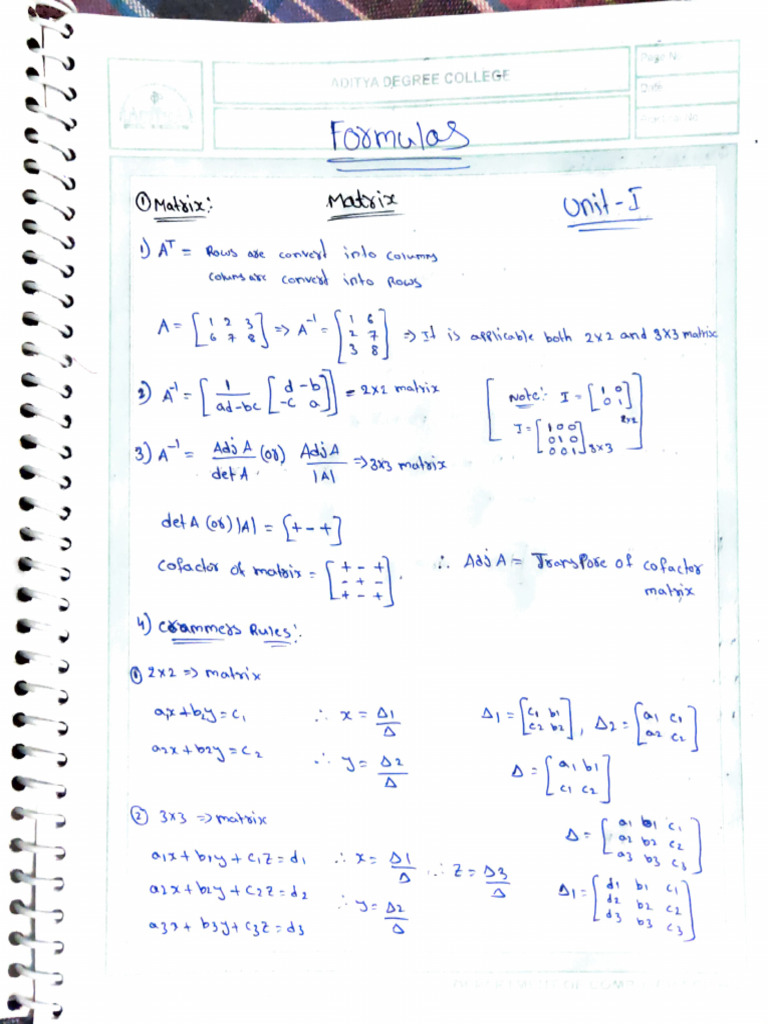 ADITYA DEGREE COLLEGE
Page No
Date
Formulas
① Matrix:
Matrix
Unit-I
1) Aᵀ = Rows are convert into columns
colums are convert into Rows
A = [1 2 3; 6 7 8] => A⁻¹ = [1 6; 2 7; 3 8] => It is applicable both 2x2 and 3x3 matrix
2) A⁻¹ = [1/(ad-bc) [d -b; -c a]] = 2x2 matrix
[Note: I = [1 0; 0 1] 2x2
I = [1 0 0; 0 1 0; 0 0 1] 3x3]
3) A⁻¹ = Adj A/det A (or) Adj A/|A| => 3x3 matrix
det A (or) |A| = [+ - +]
cofactor of matrix = [+ - +; - + -; + - +].
∴ Adj A = Transpose of cofactor
matrix
4) Crammers Rules:
① 2x2 => matrix
a₁x + b₂y = c₁ ∴ x = Δ1/Δ Δ1 = [c₁ b₁; c2 b2], Δ2 = [a1 c1; a2 c2]
a2x + b2y = c2 ∴ y = Δ2/Δ Δ = [a1 b1; c1 c2]
② 3x3 => matrix
Δ = [a1 b1 c1; a2 b2 c2; a3 b3 c3]
a1x + b1y + c1z = d1 ∴ x = Δ1/Δ ∴ z = Δ3/Δ
a2x + b2y + c2z = d2 ∴ y = Δ2/Δ Δ1 = [d1 b1 c1; d2 b2 c2; d3 b3 c3]
a3x + b3y + c3z = d3